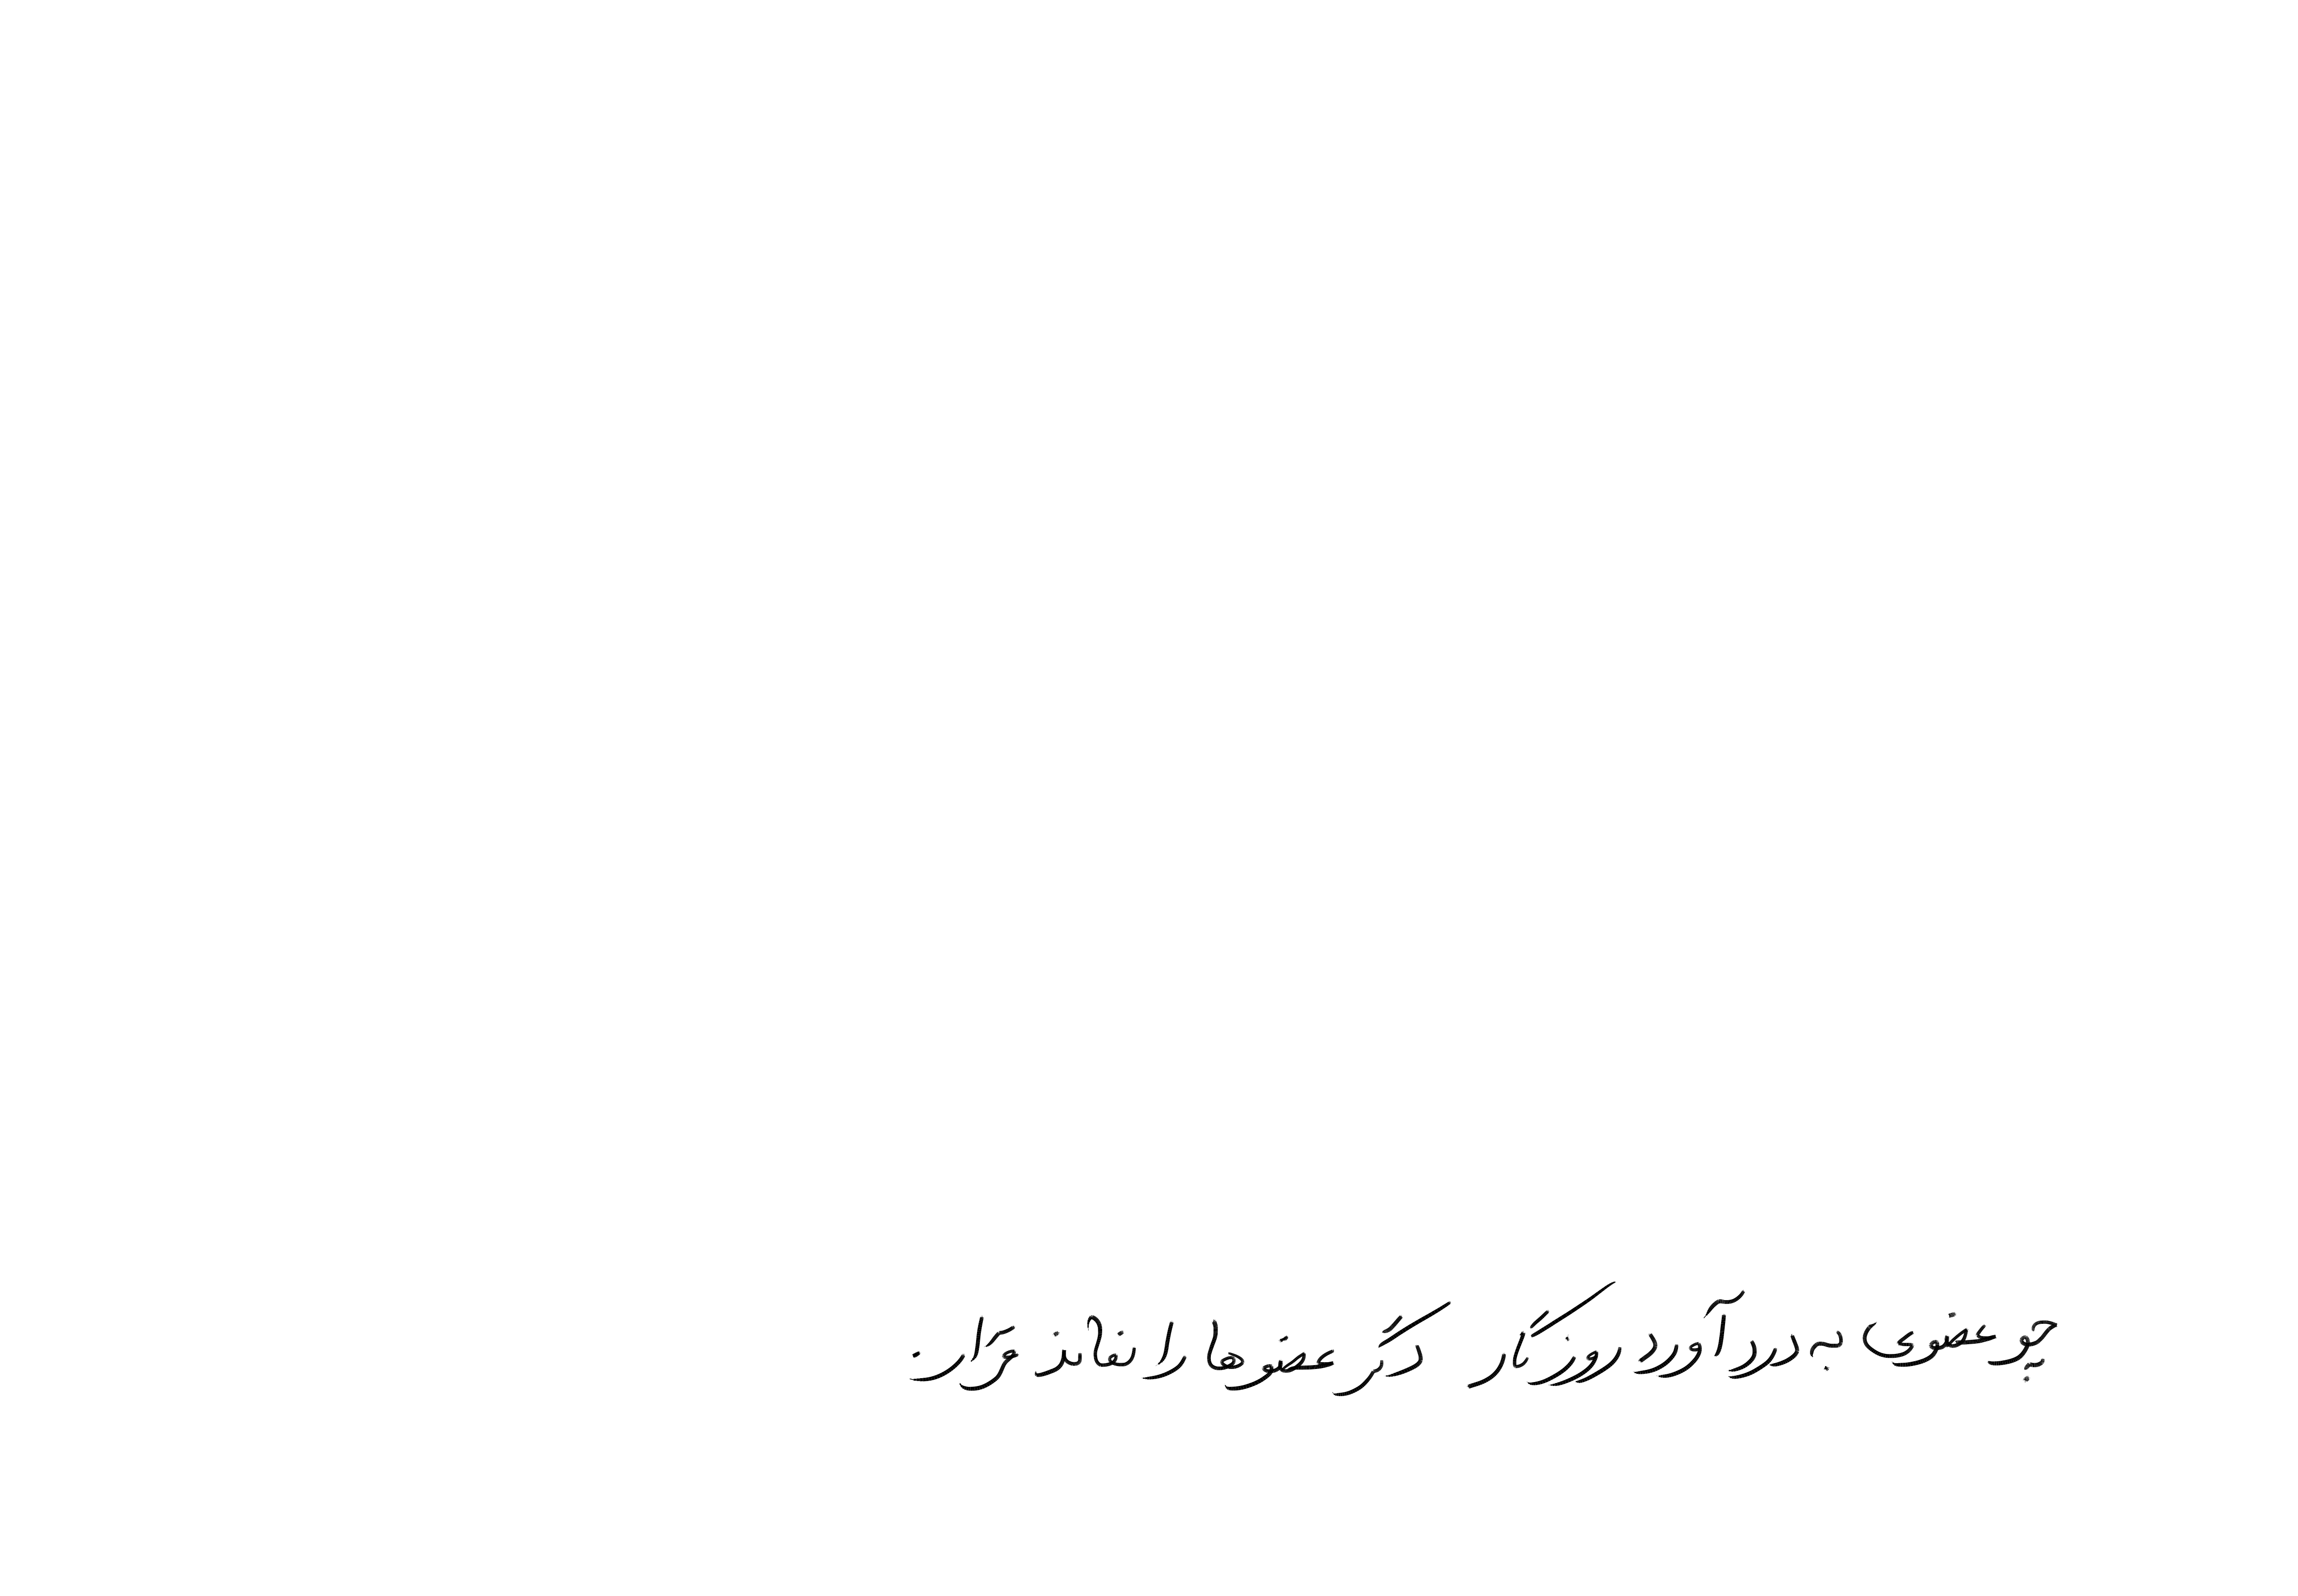 چو عضوی به درد آورد روزگار دگر عضوها را نماند قرار